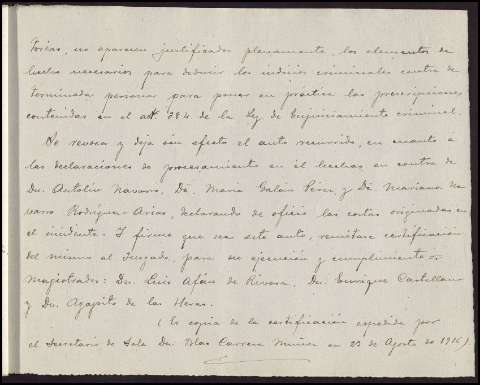 torias, no aparecen justificados plenamente, los elementos de
hecho necesarios para deducir los indicios criminales contra de
terminada persona, para poner en práctica las prescripciones
contenidas en el art. 384 de la Ley de Enjuiciamiento criminal.
Se revoca y deja sin efecto el auto recurrido, en cuanto á
las declaraciones de procesamiento en él hechas en contra de
Dn. Antolin Navarro, Dª. Maria Galán Pérez y Dª Mariana Na
varro Rodriguez-Arias, declarando de oficio las costas originadas en
el incidente. Y firme que sea este auto, remitase certificación
del mismo al Juzgado, para su ejecución y cumplimiento.=
Magistrados: Dn. Luis Afán de Rivera, Dn. Enrique Castellano
y Dn. Agapito de las Heras.
(Es copia de la certificación expedida por
el Secretario de Sala Dn. Blas Carrera Muñoz en 23 de Agosto de 1916)